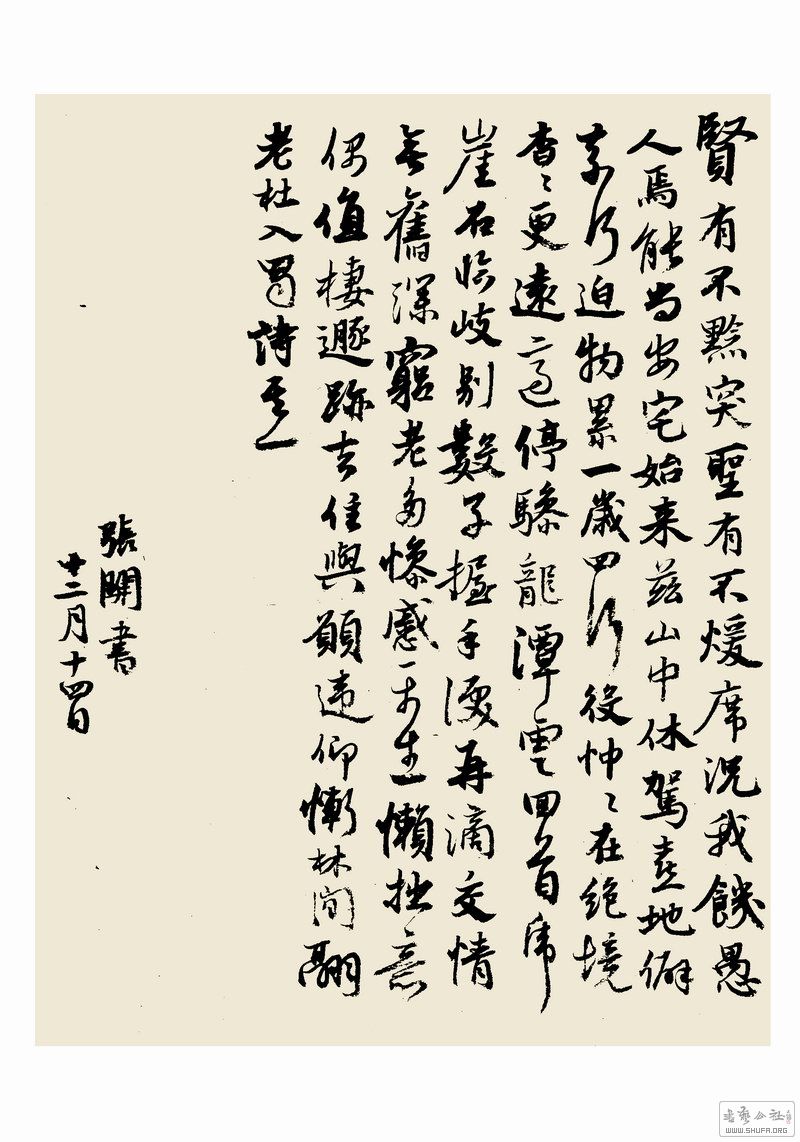 賢有不黔突聖有不煖席況我饑愚
人焉能尚安宅始来茲山中休駕喜地僻
奈何迫物累一歲四行役忡〻在绝境
杳〻更遠適停驂龍潭雲回首虎
崖石臨岐别數子握手淚再滴交情
無舊深窮老多慘慼平生懶拙意
偶值棲遯跡去住與願違仰慚林间翮
老杜入蜀詩之一
張開書
二月十四日
書藝公社
WWW.SHUFA.ORG